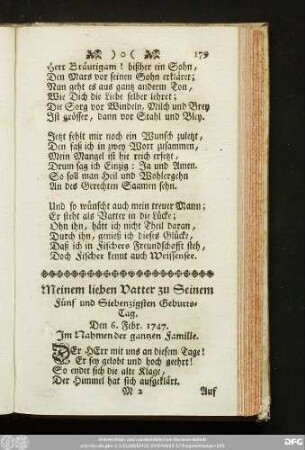 )o( 179
Herr Bräutigam! bißher ein Sohn,
Den Mars vor seinen Sohn erkläret;
Nun geht es aus gantz anderm Ton,
Wie Dich die Liebe selber lehret;
Die Sorg vor Windeln, Milch und Brey
Ist grösser, dann vor Stahl und Bley.
Jetzt fehlt mir noch ein Wunsch zuletzt,
Den faß ich in zwey Wort zusammen,
Mein Mangel ist hie reich ersetzt,
Drum sag ich Einzig: Ja und Amen.
So soll man Heil und Wohlergehn
An des Gerechten Saamen sehn.
Und so wünscht auch mein treuer Mann;
Er steht als Vatter in die Lücke;
Ohn ihn, hätt ich nicht Theil daran,
Durch ihn, genieß ich dieses Glücke,
Daß ich in Fischers Freundschafft steh,
Doch Fischer kennt auch Weissensee.
Meinem lieben Vatter zu Seinem
Fünf und Siebenzigsten Geburts-
Tag.
Den 6. Febr. 1747.
Im Nahmen der gantzen Familie.
DEr HErr mit uns an diesem Tage!
Er sey gelobt und hoch geehrt!
So endet sich die alte Klage,
Der Himmel hat sich aufgeklärt.
M 2 Auf